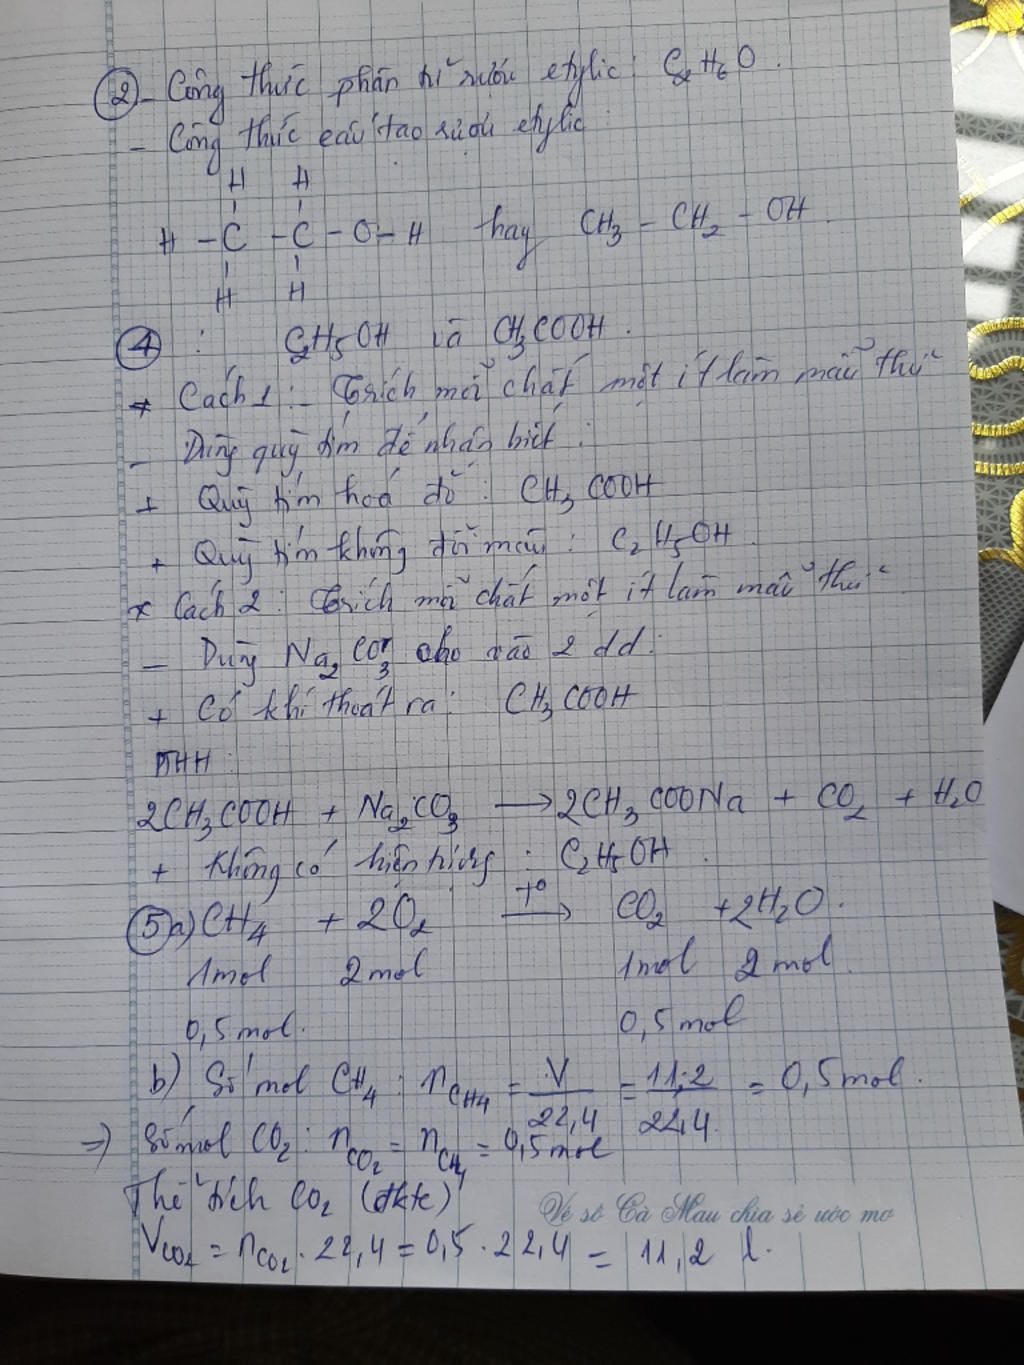 ② - Công thức phân tử rượu etylic: C₂H₆O.
- Công thức cấu tạo rượu etylic:
H H
H - C - C - O - H hay CH₃ - CH₂ - OH.
H H
④ : C₂H₅OH và CH₃COOH.
* Cách 1: - Trích mỗi chất một ít làm mẫu thử
- Dùng quỳ tím để nhận biết:
+ Quỳ tím hoá đỏ: CH₃COOH
+ Quỳ tím không đổi màu: C₂H₅OH.
* Cách 2: Trích mỗi chất một ít làm mẫu thử
- Dùng Na₂CO₃ cho vào 2 dd:
+ Có khí thoát ra: CH₃COOH
PTHH:
2CH₃COOH + Na₂CO₃ → 2CH₃COONa + CO₂ + H₂O
+ Không có hiện tượng: C₂H₅OH.
⑤ a) CH₄ + 2O₂ –t°→ CO₂ + 2H₂O.
1mol 2mol 1mol 2mol.
0,5mol. 0,5mol
b) Số mol CH₄: nCH₄ = V/22,4 = 11,2/22,4 = 0,5mol.
⇒) Số mol CO₂: nCO₂ = nCH₄ = 0,5mol
Thể tích CO₂ (đktc)
VCO₂ = nCO₂ . 22,4 = 0,5 . 22,4 = 11,2 l.
Vé số Cà Mau chia sẻ ước mơ